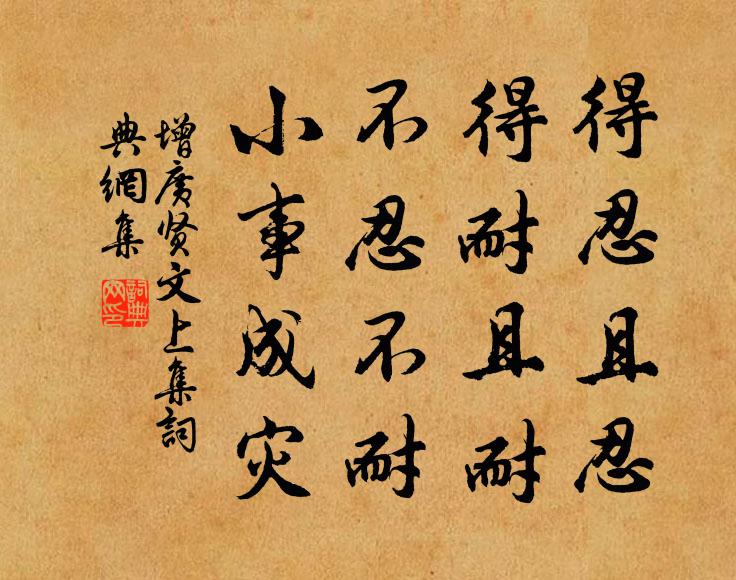 得忍且忍
得耐且耐
不忍不耐
小事成灾
增廣贤文上集詞
典網集
詞典网印